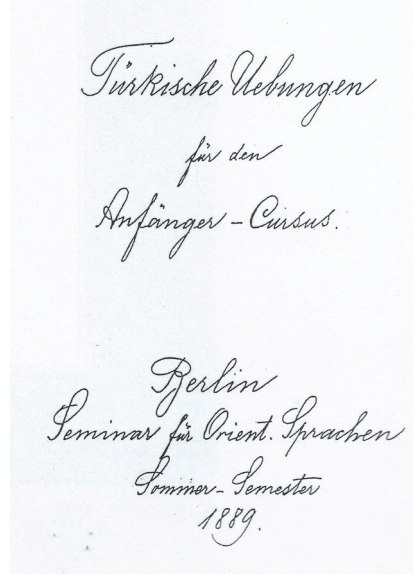 Türkische Uebungen
für den
Anfänger - Cursus.
Berlin
Seminar für Orient. Sprachen
Sommer - Semester
1889.